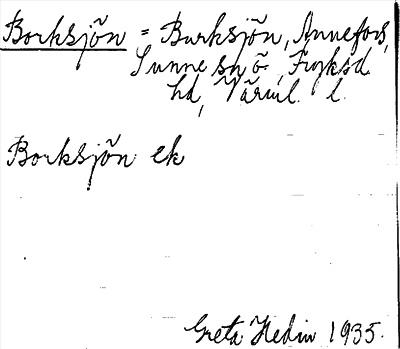 Borksjön = Burksjön, Annefors,
Sunne sn ö. Fryksd
hd, Värml. l.
Borksjön ek
Greta Hedin 1935.